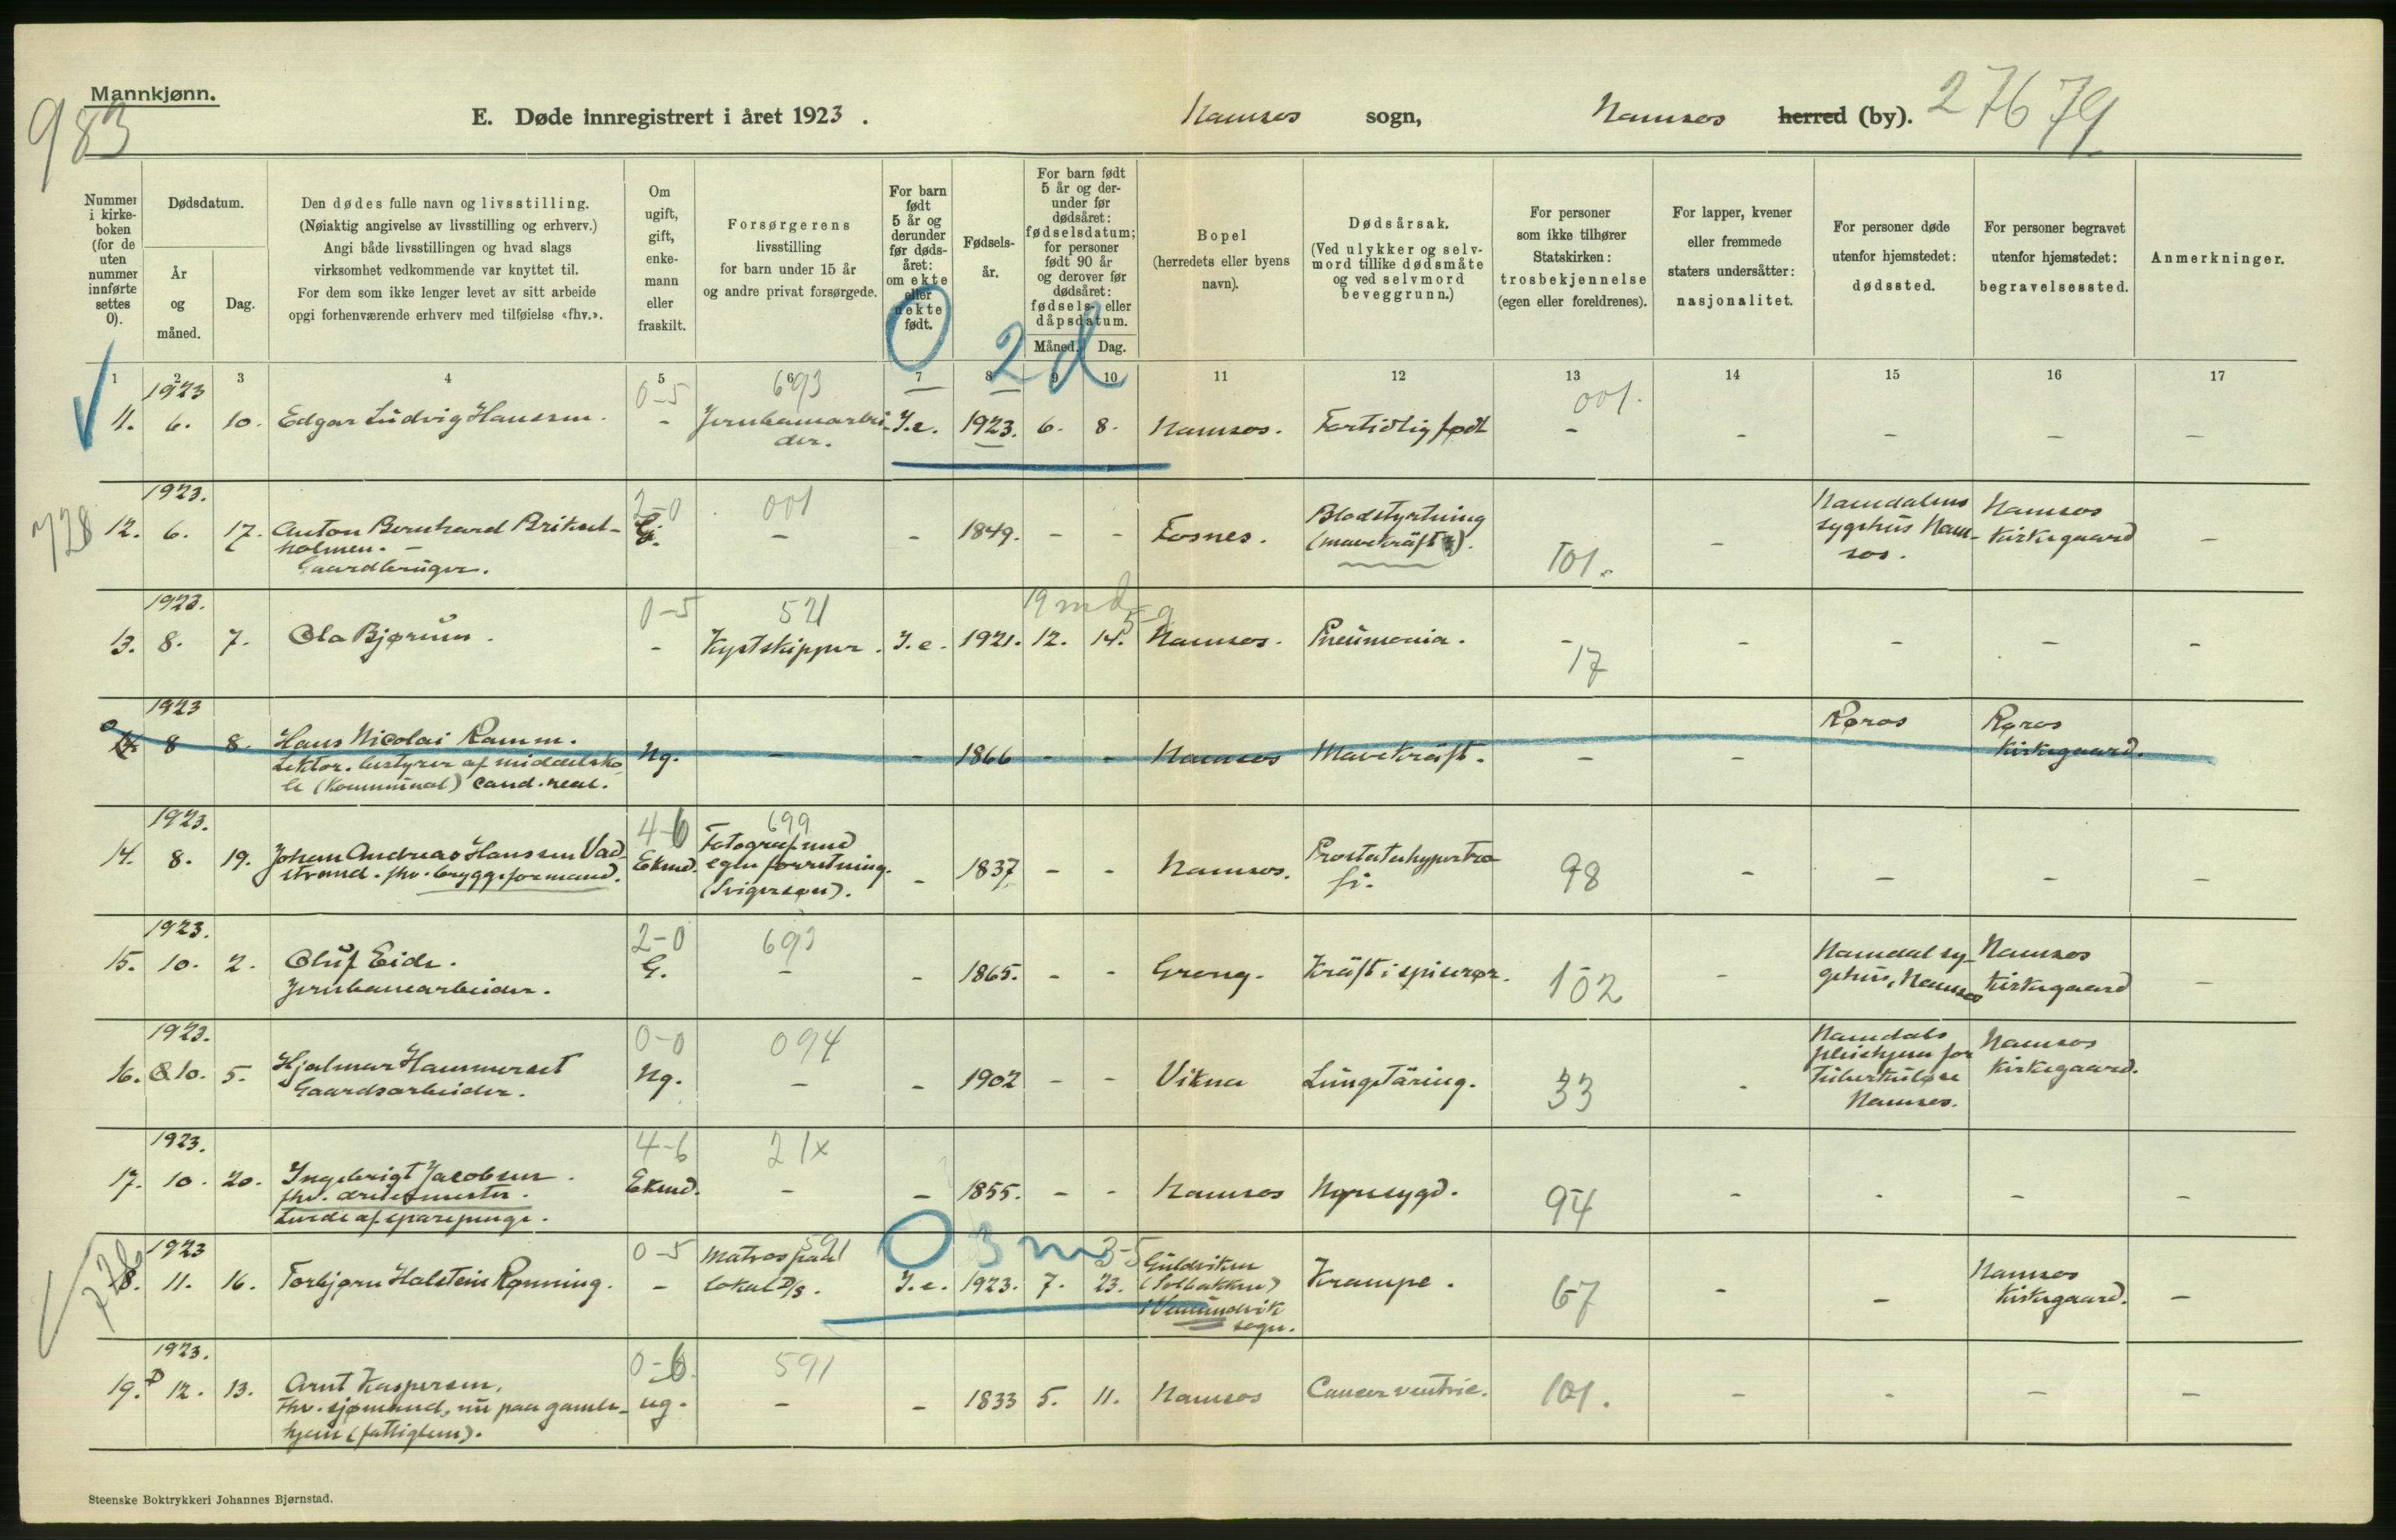 Mannkjønn.
983
E. Døde innregistrert i året 1923.
Namsos sogn,
Namsos herred (by).
27679
Nummer i kirkeboken (for de uten nummer innførte settes 0).
Dødsdatum.
År og måned.
Dag.
Den dødes fulle navn og livsstilling.
(Nøiaktig angivelse av livsstilling og erhverv.)
Angi både livsstillingen og hvad slags
virksomhet vedkommende var knyttet til.
For dem som ikke lenger levet av sitt arbeide
opgi forhenværende erhverv med tilføielse «fhv.».
Om ugift, gift, enkemann eller fraskilt.
Forsørgerens
livsstilling
for barn under 15 år
og andre privat forsørgede.
For barn født 5 år og derunder før dødsåret: om ekte eller uekte født.
Fødselsår.
For barn født 5 år og derunder før dødsåret: fødselsdatum; for personer født 90 år og derover før dødsåret: fødsels- eller dåpsdatum.
Måned. Dag.
Bopel
(herredets eller byens navn).
Dødsårsak.
(Ved ulykker og selvmord tillike dødsmåte og ved selvmord beveggrunn.)
For personer som ikke tilhører Statskirken: trosbekjennelse (egen eller foreldrenes).
For lapper, kvener eller fremmede staters undersåtter: nasjonalitet.
For personer døde utenfor hjemstedet: dødssted.
For personer begravet utenfor hjemstedet: begravelsessted.
Anmerkninger.
1 2 3 4 5 6 7 8 9 10 11 12 13 14 15 16 17
0 2 d
1923 0-5 693 001.
11. 6. 10. Edgar Ludvig Hanssen. - Jernbanearbeider. I.e. 1923. 6. 8. Namsos. Fortidlig født - - - - -
1923. 2-0 001
728 12. 6. 17. Anton Bernhard Brikset-
holmen. -
Gaardbruger.
G. - - 1849. - - Fosnes. Blodstyrtning
(mavekræft). 101. -
Namdalens
sygehus Nam-
sos.
Namsos
Kirkegaard -
1923. 0-5 521 19 md 5-9
13. 8. 7. Ola Bjørum. - Kystskipper. I.e. 1921. 12. 14. Namsos. Pneumonia. - 17 - - - -
1923
0 8 8. Hans Nicolai Ramm.
Lektor. bestyrer af middelsko-
le (Kommunal) cand. real.
Ug. - - 1866 - - Namsos Mavekræft. - -
Røros
Røros
Kirkegaard.
1923. 4-6 699
14. 8. 19. Johan Andreas Hanssen Vad-
strand. fhv. bryggeformand.
Ekmd. Fotograf med
egen forretning.
(Svigersøn).
- 1837 - - Namsos. Prostatahypertro-
fi. 98 - - - -
1923. 2-0 693
15. 10. 2. Oluf Eide.
Jernbanearbeider.
G. - - 1865. - - Grong. Kræft i spiserør. 102 -
Namdal sy-
gehus, Namsos
Namsos
Kirkegaard -
1923. 0-0 094
16. 10. 5. Hjalmar Hammerset
Gaardsarbeider.
Ug. - - 1902 - - Vikna Lungetæring. 33 -
Namdals
pleiehjem for
Tuberkuløse
Namsos.
Namsos
Kirkegaard.
1923. 4-6 21x
17. 10. 20. Ingebrigt Jacobsen.
fhv.
Levde af sparepenge.
Ekmd. - - 1855. - - Namsos Nyresygd. 94 - - - -
1923 0-5 591 0 3 m 3-5
18. 11. 16. Torbjørn Halstein Rønning. - Matros paa
lokal D/S. I.e. 1923. 7. 23. Guldviken
(Solbakken)
Vemundvik
sogn.
Krampe. 67 - -
Namsos
Kirkegaard. -
1923. 0-6 591
19. 12. 13. Arnt Kaspersen.
Fhv. sjømand, nu paa gamle-
hjem (fattiglem).
ug. - - 1833 5. 11. Namsos Cancer ventric. 101. - - - -
Steenske Boktrykkeri Johannes Bjørnstad.